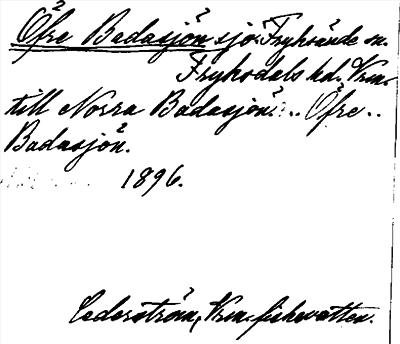 Öfre Badasjön sjö: Fryksände sn.
Fryksdals hd. Vrm.
till Norra Badasjön. .. Öfre ..
Badasjön.
1896.
Cederström, Vrm. fiskevatten.